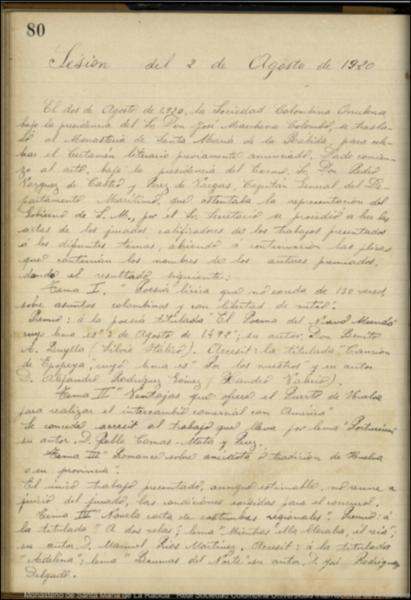 80
Sesion del 2 de Agosto de 1920
El dos de Agosto de 1920, la Sociedad Colombina Onubense,
bajo la presidencia del Sr. Don José Marchena Colombo, se trasla-
dó al Monasterio de Santa Maria de la Rabida, para cele-
brar el Certamen literario previamente anunciado. Dado comien-
zo al acto, bajo la presidencia del Excmo. Sr. Don Pedro
Vazquez de Castro y Perez de Vargas, Capitan General del De-
partamento Maritimo, que ostentaba la representacion del
Gobierno de S. M., por el Sr. Secretario se procedió a leer las
actas de los jurados calificadores de los trabajos presentados
á los diferentes temas, abriendo á continuacion las plicas
que contenian los nombres de los autores premiados,
dando el resultado siguiente:
Tema I. "Poesia lirica que no exceda de 150 versos,
sobre asuntos colombinos y con libertad de metro".
Premio: á la poesia titulada "El Poema del Nuevo Mundo"
cuyo lema es "3 de Agosto de 1492"; su autor Don Benito
A. Silvio Accesit: la titulada, "Cancion
de Epopeya", cuyo lema es "Por los nuestros" y su autor
D. Alejandro Rodriguez
Tema II "Ventajas que ofrece el Puerto de Huelva
para realizar el intercambio comercial con America"
Se concede accesit al trabajo que lleva por lema
su autor D. Pablo Comas-Mata y Perez.
Tema III "Romance sobre anecdota ó tradicion de Huelva
ó su provincia".
El único trabajo presentado, aunque estimable, no reune á
juicio del jurado, las condiciones exigidas para el concurso.
Tema IV "Novela corta de costumbres regionales". Premio: á
la titulada "A dos velas"; lema "Mientras ella lloraba, él reia";
su autor D. Manuel Martinez. Accesit: á la titulada
"Adelina"; lema "Brumas del Norte" su autor D. José Rodriguez
Delgado.